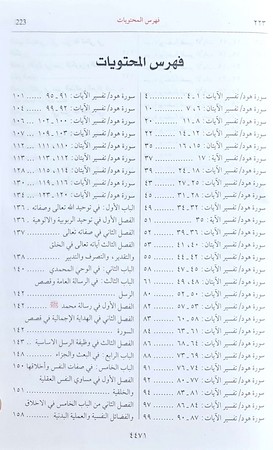 ٢٢٣ فهرس المحتويات 223
فهرس المحتويات
سورة هود/ تفسير الآيات: ١ـ٤، ٥ ........ ٤
سورة هود/ تفسير الآيتان: ٦، ٧ ........ ١٠
سورة هود/ تفسير الآيات: ٨ـ١١ ........ ٢٠
سورة هود/ تفسير الآيات: ١٢ـ١٤ ........ ٢٢
سورة هود/ تفسير الآيتان: ١٥، ١٦ ........ ٣٥
سورة هود/ تفسير الآية: ١٧ ........ ٣٧
سورة هود/ تفسير الآيات: ١٨ـ٢٤ ........ ٣٩
سورة هود/ تفسير الآيات: ٢٥ـ٢٧ ........ ٤٣
سورة هود/ تفسير الآيات: ٢٨ـ٣١ ........ ٤٥
سورة هود/ تفسير الآيات: ٣٢ـ٣٤ ........ ٤٩
سورة هود/ تفسير الآية: ٣٥ ........ ٥١
سورة هود/ تفسير الآيات: ٣٦ـ٣٩ ........ ٥٢
سورة هود/ تفسير الآيات: ٤٠ـ٤٤ ........ ٥٥
سورة هود/ تفسير الآيات: ٤٥ـ٤٨ ........ ٥٨
سورة هود/ تفسير الآيات: ٤٩ـ
سورة هود/ تفسير الآيات: ٥٠ـ٥٢ ........ ٨٠
سورة هود/ تفسير الآيات: ٥٣ـ٥٧ ........ ٨٢
سورة هود/ تفسير الآيات: ٥٨ـ٦٠ ........
سورة هود/ تفسير الآيات: ٦١ـ٦٣ ........ ٨٤
سورة هود/ تفسير الآيات: ٦٤ـ٦٨ ........ ٨٦
سورة هود/ تفسير الآيات: ٦٩ـ٧٣ ........ ٨٨
سورة هود/ تفسير الآيات: ٧٤ـ٧٦ ........ ٩١
سورة هود/ تفسير الآيات: ٧٧ـ٨٠ ........ ٩٢
سورة هود/ تفسير الآيات: ٨١ـ٨٣ ........ ٩٤
سورة هود/ تفسير الآيات: ٨٤ـ٨٦ ........ ٩٧
سورة هود/ تفسير الآيات: ٨٧ـ٩٠ ........ ٩٩
سورة هود/ تفسير الآيات: ٩١ـ٩٥ ........ ١٠١
سورة هود/ تفسير الآيات: ٩٦ـ٩٩ ........ ١٠٤
سورة هود/ تفسير الآيات: ١٠٠ـ١٠٢ ........ ١٠٦
سورة هود/ تفسير الآيات: ١٠٣ـ١٠٩ ........ ١٠٧
سورة هود/ تفسير الآيتان: ١١٠، ١١١ ........ ١١١
سورة هود/ تفسير الآيتان: ١١٢، ١١٣ ........ ١١٣
سورة هود/ تفسير الآيتان: ١١٤، ١١٥ ........ ١٢٨
سورة هود/ تفسير الآيات: ١١٦ـ١١٩ ........ ١٣٠
سورة هود/ تفسير الآيات: ١٢٠ـ١٢٣ ........ ١٣٤
الباب الأول: في توحيد الله تعالى وصفاته . ١٣٦
الفصل الأول في توحيد الربوبية والألوهية . ١٣٦
الفصل الثاني في صفاته تعالى ........ ١٣٧
الفصل الثالث آياته تعالى في الخلق
والتقدير، والتصرف والتدبير ........ ١٣٨
الباب الثاني: في الوحي المحمدي ........ ١٤٠
الباب الثالث: في الرسالة العامة وقصص
الرسل ........ ١٤٢
الفصل الأول في رسالة محمد ﷺ ........ ١٤٢
الفصل الثاني في الهداية الإجمالية في قصص
السورة ........ ١٤٢
الفصل الثالث في وظيفة الرسل الأساسية .. ١٤٣
الباب الرابع: في البعث والجزاء ........ ١٤٨
الباب الخامس: في صفات النفس وأخلاقها ١٥٠
الفصل الأول في مساوئ النفس العقلية
والخلقية ........ ١٥٠
الفصل الثاني من الباب الخامس في الأخلاق
والفضائل النفسية والعملية البدنية ........ ١٥٨
٤٤٧١